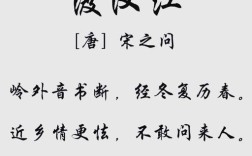 渡汉江
[唐] 宋之问
岭外音书断，经冬复历春。
近乡情更怯，不敢问来人。